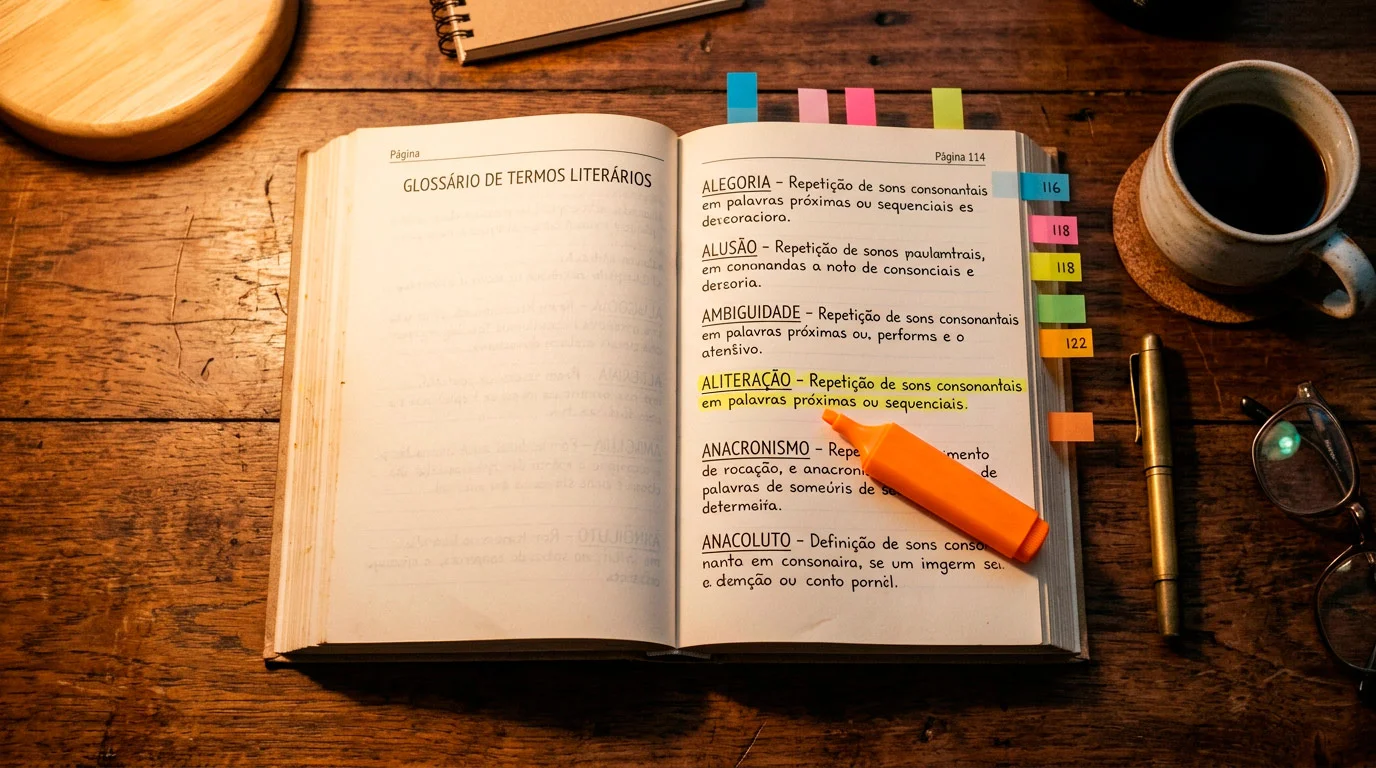 Página
GLOSSÁRIO DE TERMOS LITERÁRIOS
Página 114
ALEGORIA – Repetição de sons consonantais
em palavras próximas ou sequenciais es
dercoraciora.
ALUSÃO – Repetição de sonos paulamtrais,
em cononandas a noto de consonciais e
dersoria.
AMBIGUIDADE – Repetição de sons consonantais
em palavras próximas ou, performs e o
atensivo.
ALITERAÇÃO – Repetição de sons consonantais
em palavras próximas ou sequenciais.
ANACRONISMO –
de rocação, e de
palavras de someúris de
determeira.
ANACOLUTO – Definição de sons
nanta em consonaira, se um imgerm sei.
e. demção ou conto pornèl.
116
118
118
122